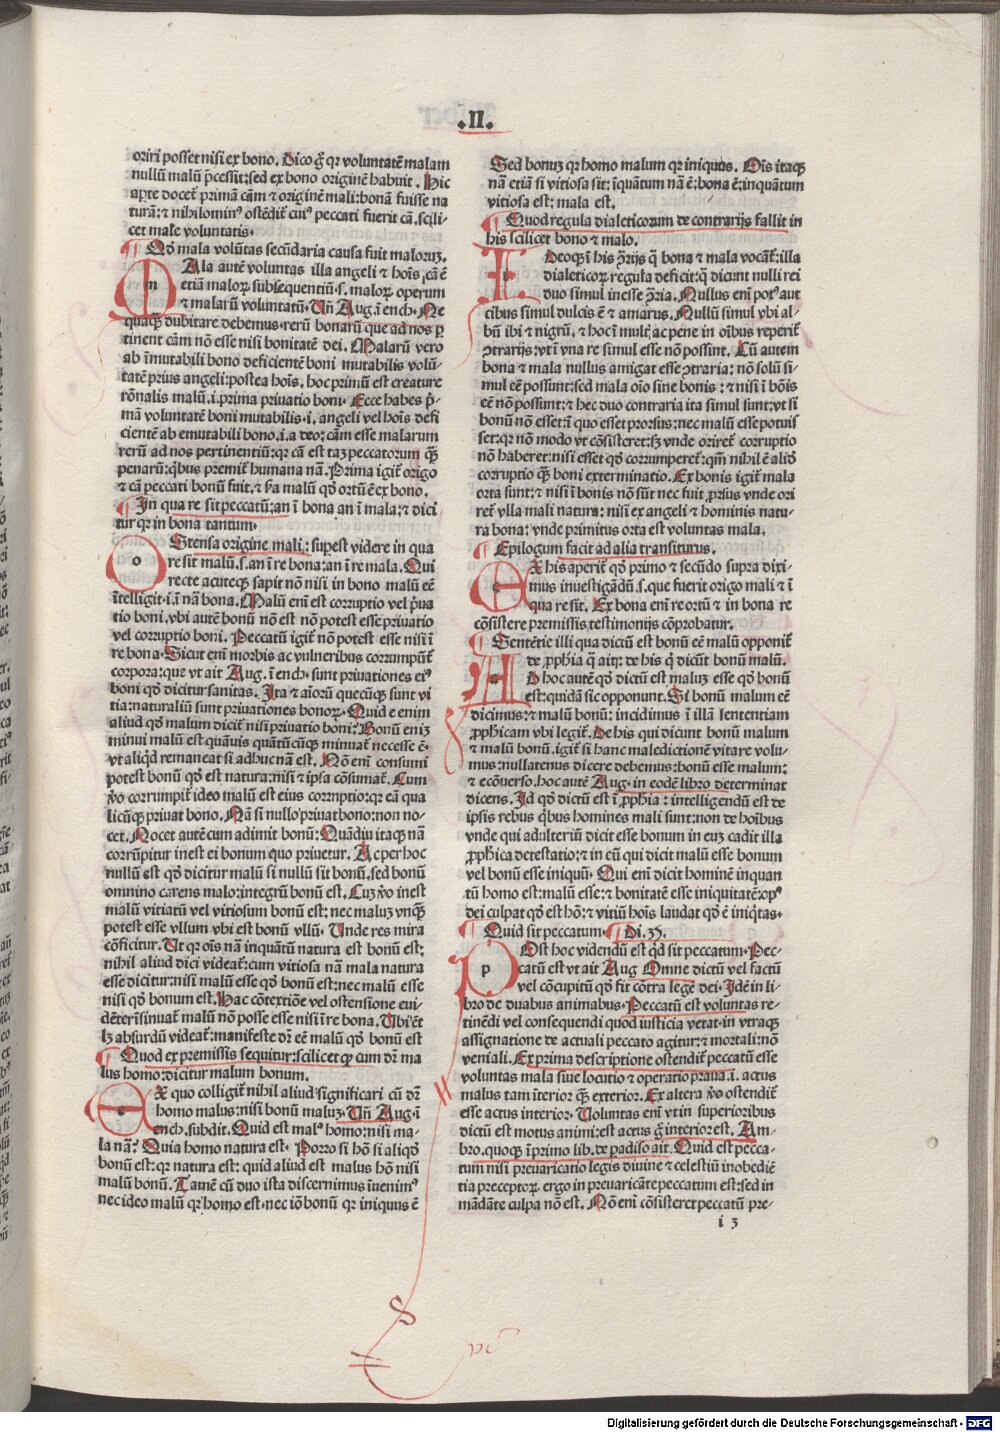 .II.
oriri posset nisi ex bono. Dico g̃ qr voluntatẽ malam
nullũ malũ p̃cessit: sed ex bono originẽ habuit. Hic
apte docet̃ primã cãm ⁊ originẽ mali: bonã fuisse na
turã: ⁊ nihilomin⁹ ostẽdit̃ cui⁹ peccati fuerit cã. scili-
cet male voluntatis.
¶ Qđ mala volũtas secũdaria causa fuit maloruꝫ.
MAla autẽ voluntas illa angeli ⁊ hoĩs, cã ẽ
etiã maloꝝ subsequentiũ. s. maloꝝ operum
⁊ malarũ voluntatũ. Uñ Aug. ĩ ench. Ne
quaq̃ dubitare debemus. rerũ bonarũ que ad nos ꝑ
tinent cãm nõ esse nisi bonitatẽ dei. Malarũ vero
ab ĩmutabili bono deficientẽ boni mutabilis volũ-
tatẽ prius angeli: postea hoĩs. hoc primũ est creature
rõnalis malũ. i. prima priuatio boni. Ecce habes p̃-
mã voluntatẽ boni mutabilis. i. angeli vel hoĩs defi
cientẽ ab ĩmutabili bono. i. a deo: cãm esse malarum
rerũ ad nos pertinentiũ: qr cã est taꝫ peccatorum q̃ꝫ
penarũ: qbus premit̃ humana nã. Prima igit̃ origo
⁊ cã peccati bonũ fuit. ⁊ scďa malũ qđ ortũ ẽ ex bono.
¶ In qua re sit peccatũ: an ĩ bona an ĩ mala: ⁊ dici
tur qr in bona tantum.
OStensa origine mali: supest videre in qua
re sit malũ. s. an ĩ re bona: an ĩ re mala. Qui
recte acuteqꝫ sapit nõ nisi in bono malũ eẽ
ĩtelligit. i. ĩ nã bona. Malũ eni est corruptio vel p̃ua
tio boni. vbi autẽ bonũ nõ est nõ potest esse priuatio
vel corruptio boni. Peccatũ igit̃ nõ potest esse nisi ĩ
re bona. Sicut eni morbis ac vulneribus corrumpũt̃
corpora: que vt ait Aug. ĩ ench. sunt priuationes ei⁹
boni qđ dicitur sanitas. Ita ⁊ aĩoꝝ quecũqꝫ sunt vi
tia: naturaliũ sunt priuationes bonoꝝ. Quid e enim
aliud qđ malum dicit̃ nisi priuatio boni: Bonũ enĩꝫ
minui malũ est quãuis quãtũcũqꝫ minuat̃ necesse ẽ.
vt aliqđ remaneat si adhuc nã est. Nõ eni consumi
potest bonũ qđ est natura: nisi ⁊ ipsa cõsumat̃. Cum
ṽo corrumpit̃ ideo malũ est eius corruptio: qr eã qua
licũqꝫ priuat bono. Nã si nullo priuat bono: non no-
cet. Nocet autẽ cum adimit bonũ: Quãdiu itaqꝫ nã
corrũpitur inest ei bonum quo priuetur. Ac per hoc
nullũ est qđ dicitur malũ si nullũ sit bonũ. sed bonũ
omnino carens malo: integrũ bonũ est. Cuꝫ ṽo inest
malũ vitiatũ vel vitiosum bonũ est: nec maluꝫ vnq̃ꝫ
potest esse vllum vbi est bonũ vllũ. Unde res mira
cõficitur. Ut qr oĩs nã inquãtũ natura est bonũ est:
nihil aliud dici videat̃: cum vitiosa nã mala natura
esse dicitur: nisi malũ esse qđ bonũ est: nec malũ esse
nisi qđ bonum est. Hac cõtextiõe vel ostensione eui-
dẽter ĩsinuat̃ malũ nõ posse esse nisi ĩ re bona. Ubi ẽt
lꝫ absurdũ videat̃: manifeste dr̃ eẽ malũ qđ bonũ est
¶ Quod ex premissis sequitur: scilicet qꝫ cum dr̃ ma
lus homo: dicitur malum bonum.
EX quo colligit̃ nihil aliud significari cũ dr̃
homo malus: nisi bonũ maluꝫ. Uñ Aug. ĩ
ench. subdit. Quid est mal⁹ homo: nisi ma-
la nã: Quia homo natura est. Porro si hõ si aliqđ
bonũ est: qr natura est: quid aliud est malus hõ nisi
malũ bonũ. Tamẽ cũ duo ista discernimus ĩuenim⁹
nec ideo malũ qr homo est. nec iõ bonũ qr iniquus ẽ
Sed bonuꝫ qr homo malum qr iniquus. Oĩs itaqꝫ
nã etiã si vitiosa sit: ĩquãtum nã ẽ: bona ẽ: inquãtum
vitiosa est: mala est.
¶ Quod regula dialeticorum de contrarijs fallit in
his scilicet bono ⁊ malo.
IDeoqꝫ ĩ his ꝯ̃rijs q̃ bona ⁊ mala vocãt̃: illa
dialeticoꝝ regula deficit: q̃ dicunt nulli rei
duo simul inesse ꝯ̃ria. Nullus eni pot⁹ aut
cibus simul dulcis ẽ ⁊ amarus. Nullũ simul vbi al-
bũ ibi ⁊ nigrũ. ⁊ hoc ĩ mult̃ ac pene in oĩbus reperit̃
ꝯtrarijs: vt ĩ vna re simul esse nõ possint. Cũ autem
bona ⁊ mala nullus amigat esse ꝯtraria: nõ solũ si-
mul eẽ possunt: sed mala oĩo sine bonis: ⁊ nisi ĩ bõis
eẽ nõ possunt: ⁊ hec duo contraria ita simul sunt: vt si
bonũ nõ esset: ĩ quo esset prorsus: nec malũ esse potuis
set: qr nõ modo vt cõsisteret: sꝫ vnde oriret̃ corruptio
nõ haberet: nisi esset qđ corrumperet̃: qm̃ nihil ẽ aliđ
corruptio q̃ꝫ boni exterminatio. Ex bonis igit̃ mala
orta sunt: ⁊ nisi ĩ bonis nõ sũt nec fuit ꝓrsus vnde ori
ret̃ vlla mali natura: nisi ex angeli ⁊ hominis natu-
ra bona: vnde primitus orta est voluntas mala.
¶ Epilogum facit ad alia transiturus.
EX his aperit̃ qđ primo ⁊ secũdo supra dixi-
mus inuestigãdũ. s. que fuerit origo mali ⁊ ĩ
qua re sit. Ex bona eni re ortũ ⁊ in bona re
cõsistere premissis testimonijs cõprobatur.
¶ Sentẽtie illi qua dictũ est bonũ eẽ malũ opponit̃
de ꝓpħia q̃ ait: de his q̃ dicũt bonũ malũ.
AD hoc autẽ qđ dictũ est maluꝫ esse qđ bonũ
est: quidã sic opponunt. Si bonũ malum eẽ
dicimus: ⁊ malũ bonũ: incidimus ĩ illã sententiam
ꝓpħicam vbi legit̃. De his qui dicunt bonũ malum
⁊ malũ bonũ. igit̃ si hanc maledictionẽ vitare volu-
mus: nullatenus dicere debemus: bonũ esse malum:
⁊ ecõuerso. hoc autẽ Aug. in eodẽ libro determinat
dicens. Id qđ dictũ est ĩ ꝓpħia: intelligendũ est de
ipsis rebus q̃bus homines mali sunt: non de hoĩbus
vnde qui adulteriũ dicit esse bonum in euꝫ cadit illa
ꝓpħica detestatio: ⁊ in eũ qui dicit malũ esse bonum
vel bonũ esse iniquũ. Qui eni dicit hominẽ inquan
tũ homo est: malũ esse: ⁊ bonitatẽ esse iniquitatẽ: op⁹
dei culpat qđ est hõ: ⁊ vitiũ hoĩs laudat qđ ẽ iniq̃tas.
¶ Quid sit peccatum. ¶ Di. 35.
POst hoc videndũ est qđ sit peccatum. Pec-
catũ est vt ait Aug Omne dictũ vel factũ
vel cõcupitũ qđ fit cõtra legẽ dei. Idẽ in li-
bro de duabus animabus. Peccatũ est voluntas re-
tinẽdi vel consequendi quod iusticia vetat. in vtraqꝫ
assignatione de actuali peccato agitur: ⁊ mortali: nõ
veniali. Ex prima descriptione ostendit̃ peccatũ esse
voluntas mala siue locutio ⁊ operatio praua. i. actus
malus tam ĩterior q̃ꝫ exterior. Ex altera ṽo ostendit̃
esse actus interior. Voluntas eni vt in superioribus
dictũ est motus animi: est actus g̃ interior est. Am-
bro. quoqꝫ ĩ primo lib. de padiso ait. Quid est pecca-
tum nisi preuaricatio legis diuine ⁊ celestiũ inobediẽ
tia preceptoꝝ. ergo in preuaricãte peccatum est: sed in
mãdãte culpa nõ est. Nõ eni cõsisteret peccatũ pre-
i 3
Digitalisierung gefördert durch die Deutsche Forschungsgemeinschaft - DFG